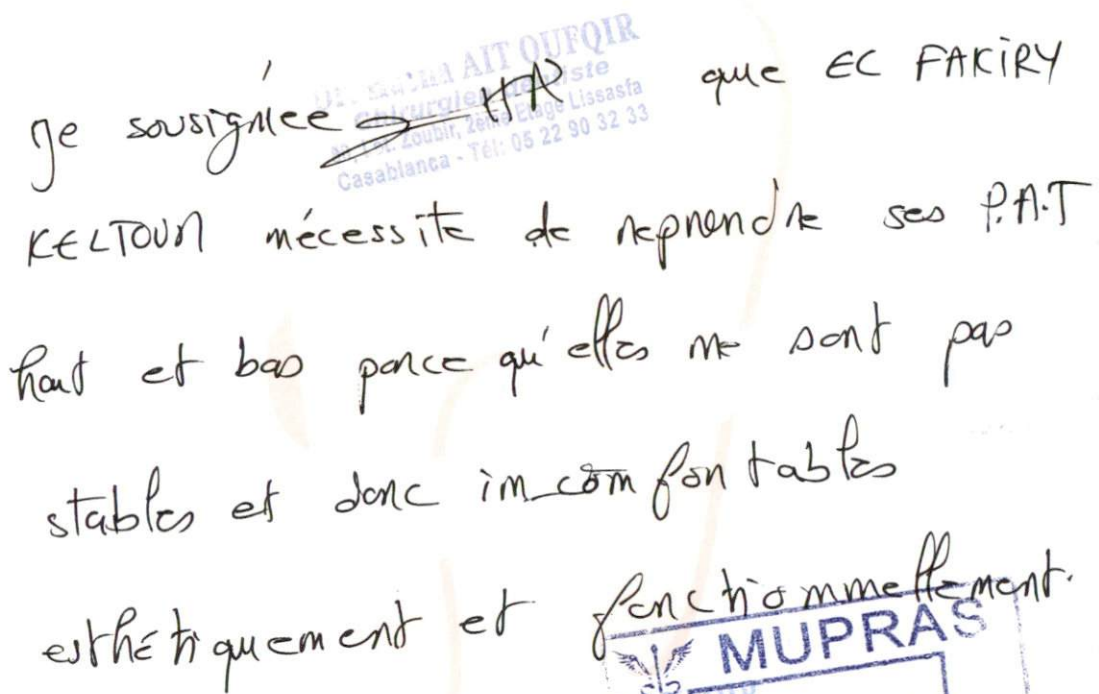 AIT OUFQIR
Chirurgien dentiste
Zoubir, 2ème Etage Lissasfa
Casablanca - Tél: 05 22 90 32 33
je sousignée que EC FAKIRY
KELTOUM nécessite de reprendre ses P.A.T
haut et bas parce qu'elles ne sont pas
stables et donc inconfortables
esthétiquement et fonctionnellement.
MUPRAS